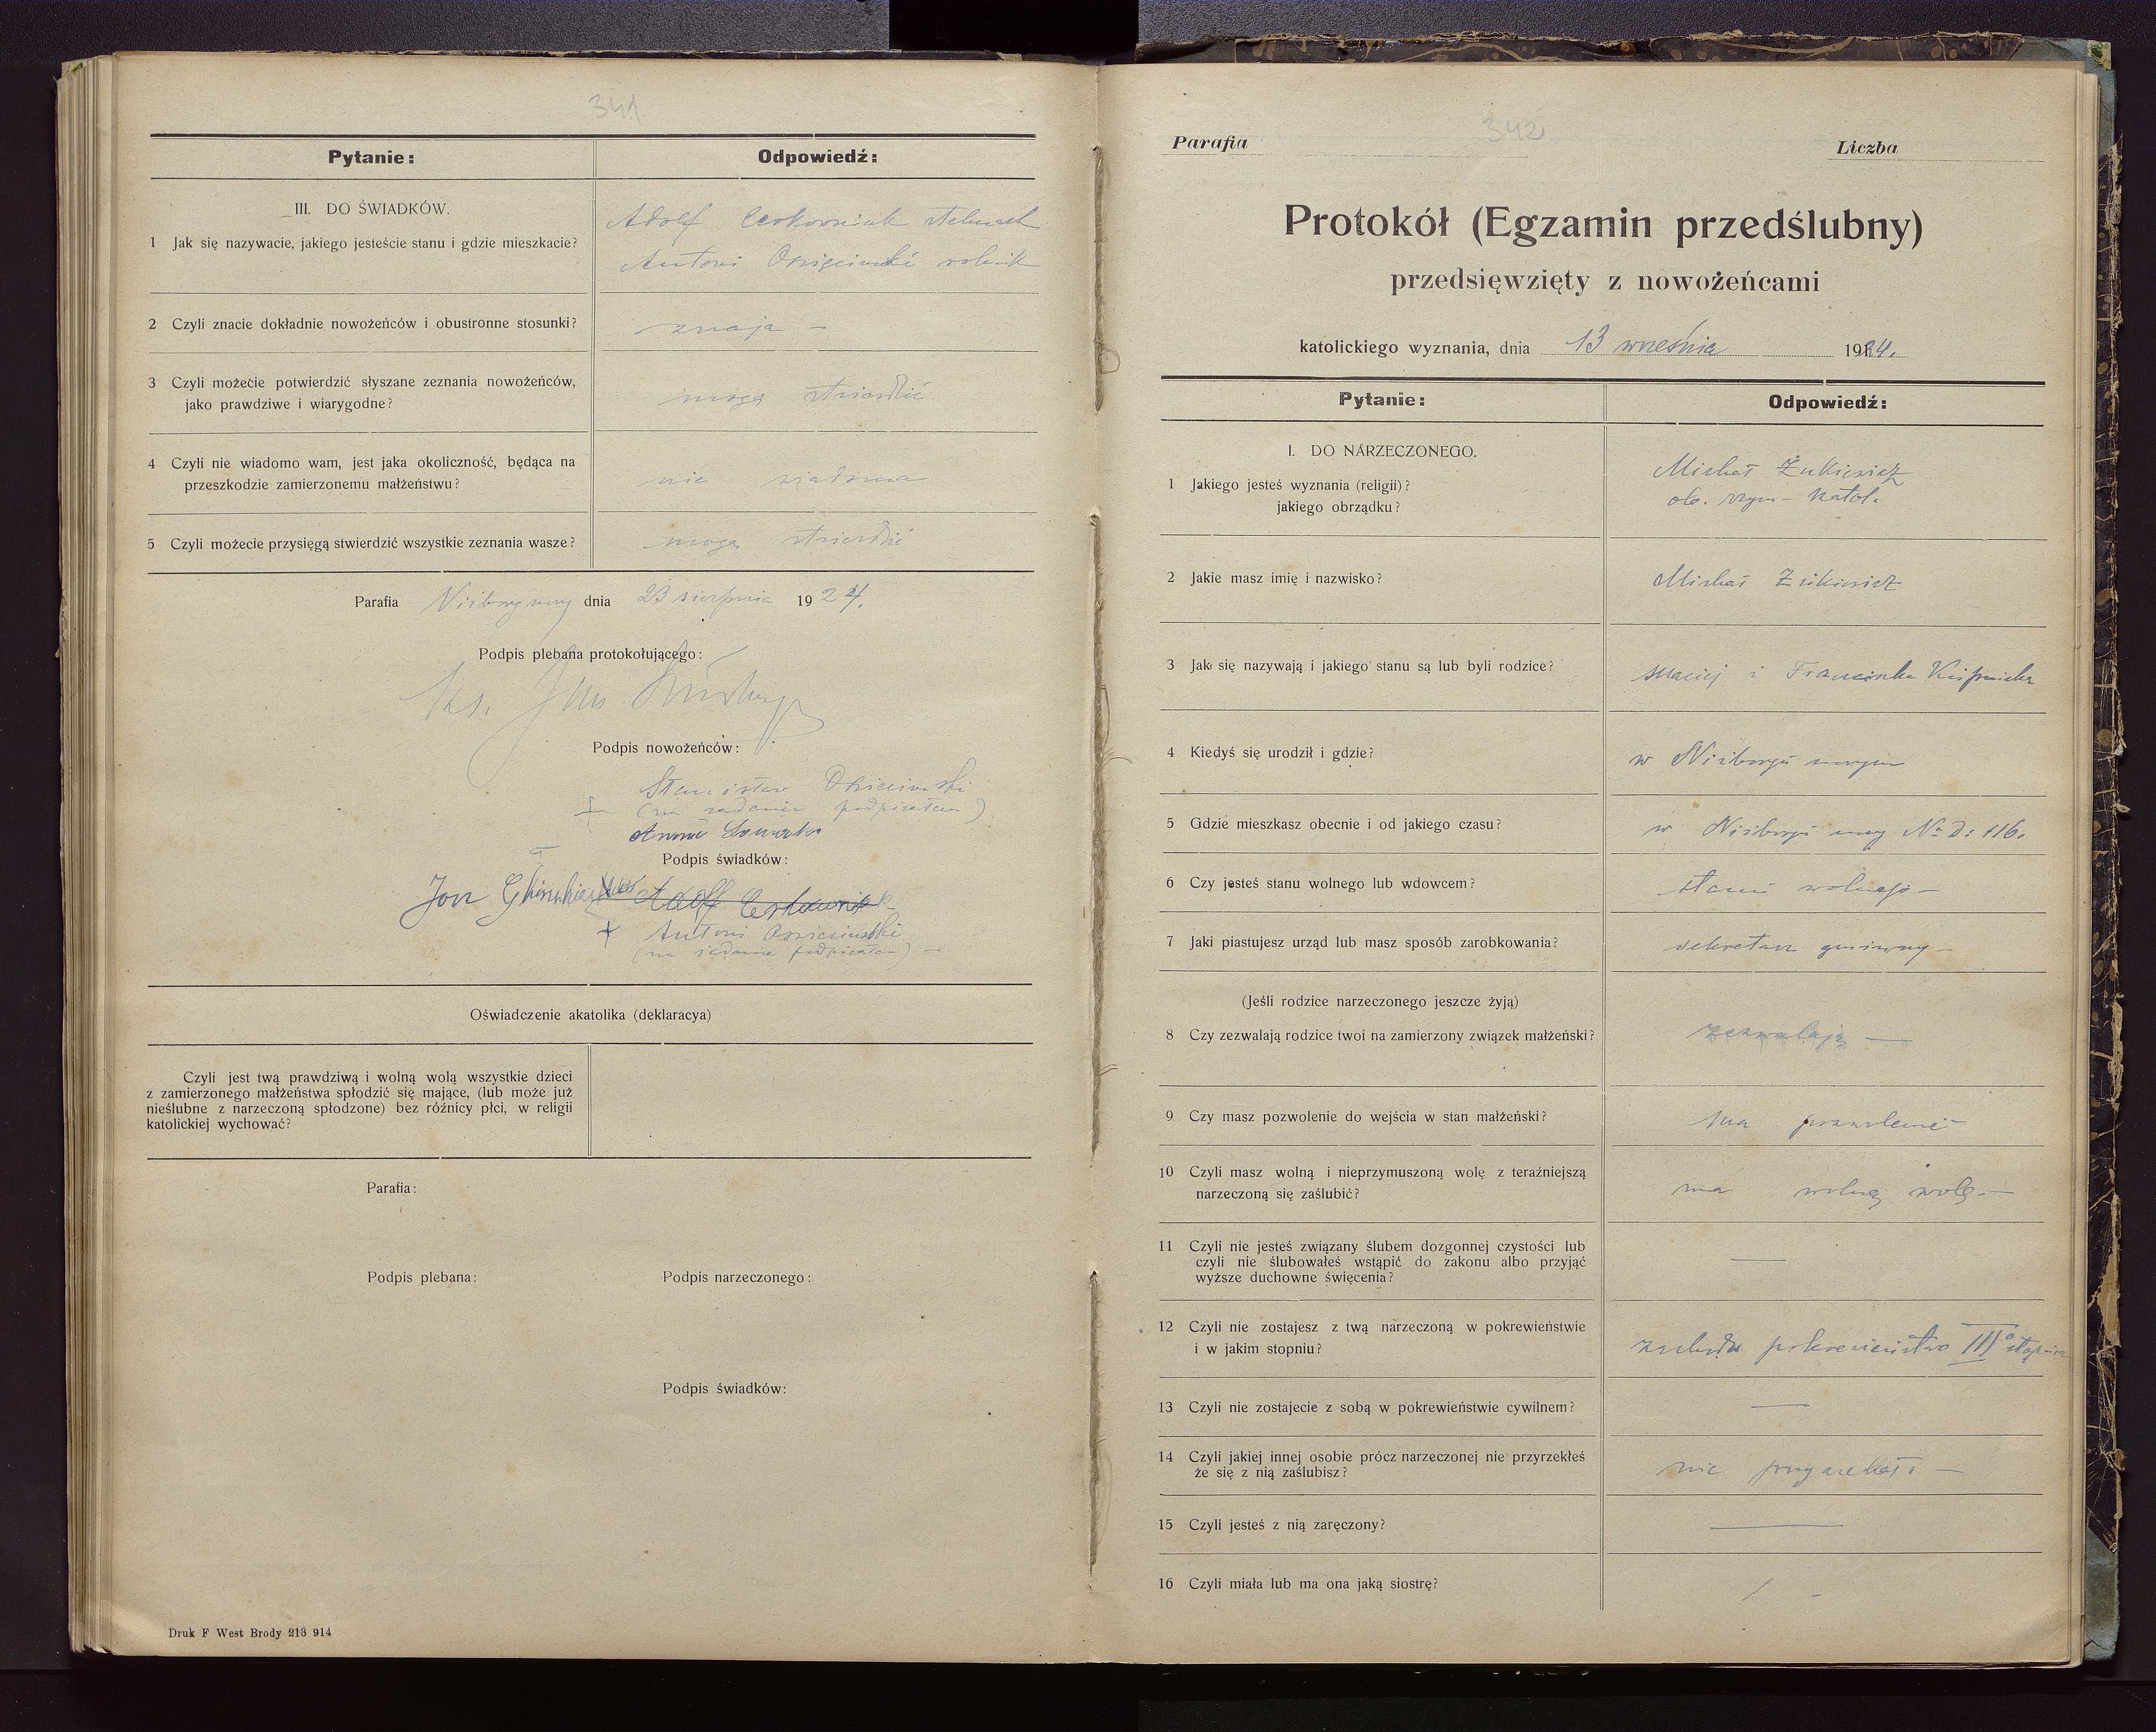 341
Pytanie:
Odpowiedź:
III. DO ŚWIADKÓW.
1 Jak się nazywacie, jakiego jesteście stanu i gdzie mieszkacie?
Adolf
Antoni rolnik
2 Czyli znacie dokładnie nowożeńców i obustronne stosunki?
znają –
3 Czyli możecie potwierdzić słyszane zeznania nowożeńców,
jako prawdziwe i wiarygodne?
mogą
4 Czyli nie wiadomo wam, jest jaka okoliczność, będąca na
przeszkodzie zamierzonemu małżeństwu?
nie
5 Czyli możecie przysięgą stwierdzić wszystkie zeznania wasze?
mogą
Parafia dnia 23 sierpnia 1924.
Podpis plebana protokołującego:
Ks. Jan
Podpis nowożeńców:
Stanisław
+
Podpis świadków:
Adolf
+ Antoni
Oświadczenie akatolika (deklaracya)
Czyli jest twą prawdziwą i wolną wolą wszystkie dzieci
z zamierzonego małżeństwa spłodzić się mające, (lub może już
nieślubne z narzeczoną spłodzone) bez różnicy płci, w religii
katolickiej wychować?
Parafia:
Podpis plebana:
Podpis narzeczonego:
Podpis świadków:
Druk F West Brody 213 914
342
Parafia
Liczba
Protokół (Egzamin przedślubny)
przedsięwzięty z nowożeńcami
katolickiego wyznania, dnia 13 września 1924.
Pytanie:
Odpowiedź:
I. DO NARZECZONEGO.
1 Jakiego jesteś wyznania (religii)?
jakiego obrządku?
Michał
ob. rzym – katol.
2 Jakie masz imię i nazwisko?
Michał
3 Jak się nazywają i jakiego stanu są lub byli rodzice?
Maciej i
4 Kiedyś się urodził i gdzie?
w
5 Gdzie mieszkasz obecnie i od jakiego czasu?
w № D: 116.
6 Czy jesteś stanu wolnego lub wdowcem?
stanu wolnego –
7 Jaki piastujesz urząd lub masz sposób zarobkowania?
sekretarz gminny –
(Jeśli rodzice narzeczonego jeszcze żyją)
8 Czy zezwalają rodzice twoi na zamierzony związek małżeński?
zezwalają —
9 Czy masz pozwolenie do wejścia w stan małżeński?
ma pozwolenie –
10 Czyli masz wolną i nieprzymuszoną wolę z teraźniejszą
narzeczoną się zaślubić?
ma wolną wolę. –
11 Czyli nie jesteś związany ślubem dozgonnej czystości lub
czyli nie ślubowałeś wstąpić do zakonu albo przyjąć
wyższe duchowne święcenia?
—
12 Czyli nie zostajesz z twą narzeczoną w pokrewieństwie
i w jakim stopniu?
zachodzi pokrewieństwo III° stopnia
13 Czyli nie zostajecie z sobą w pokrewieństwie cywilnem?
—
14 Czyli jakiej innej osobie prócz narzeczonej nie przyrzekłeś
że się z nią zaślubisz?
nie przyrzekał –
15 Czyli jesteś z nią zaręczony?
—
16 Czyli miała lub ma ona jaką siostrę?